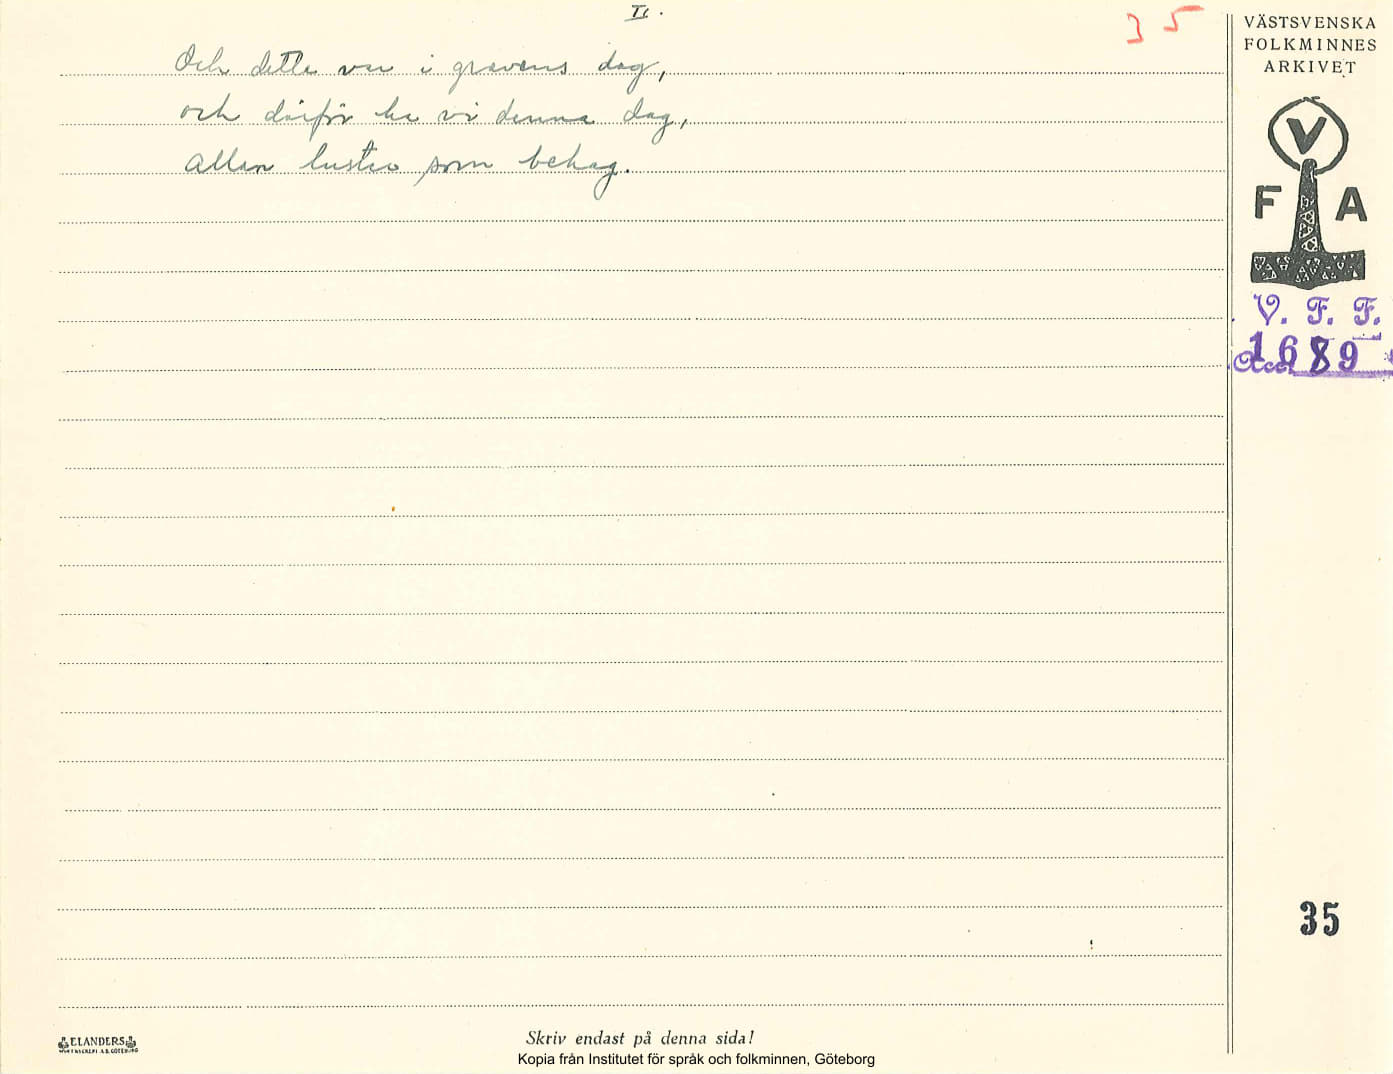 II.
35
Och detta var i gravens dag,
och därför ha vi denna dag,
allan lusten som behag.
VÄSTSVENSKA
FOLKMINNES
ARKIVET
V
F A
V. F. F.
Acc. 1689
35
ELANDERS
GÖTEBORG
Skriv endast på denna sida!
Kopia från Institutet för språk och folkminnen, Göteborg